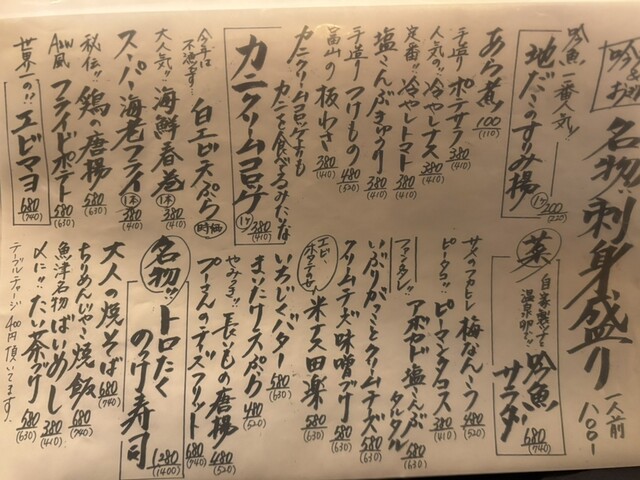 名物!! 刺身盛り 一人前 八〇〇〜
吟魚一番人気!!
地だこのすりみ揚 1ヶ 200 (220)
あら煮 100 (110)
手造り ポテサラ 380 (410)
人気の!! 冷やしナス 380 (410)
定番!! 冷やしトマト 380 (410)
塩こんぶきゅうり 380 (410)
手造り つけもの 480 (520)
富山の 板わさ 380 (410)
カニクリームコロッケよりも
カニを食べてるみたいな
カニクリームコロッケ 1ヶ 380 (410)
今年は不漁です!
白エビ天ぷら 時価
大人気!! 海鮮春巻 1本 380 (410)
スーパー海老フライ 1本 380 (410)
秘伝!! 鶏の唐揚 580 (630)
フライドポテト 580 (630)
世界一の!! エビマヨ 680 (740)
菜
自家製です
温泉卵
吟魚サラダ 680 (740)
サメのフカヒレ 梅なんこつ 480 (520)
ピーマンタコス 380 (410)
アボカド塩こんぶタルタル 580 (630)
いぶりがっことクリームチーズ 580 (630)
クリームチーズ味噌づけ 380 (410)
エビ、ホタテ
米ナス田楽 580 (630)
いちじくバター 580 (630)
まいたけ天ぷら 480 (520)
やみつき!! 長いもの唐揚 480 (520)
プーマンのチーズフリット 680 (740)
名物!! トロたくのっけ寿司 1280 (1400)
大人の焼そば 680 (740)
ちりめんじゃこ焼飯 680 (740)
魚津名物 ばいめし 380 (410)
〆に!! たい茶づけ 580 (630)
テーブルチャージ 400円頂いてます。